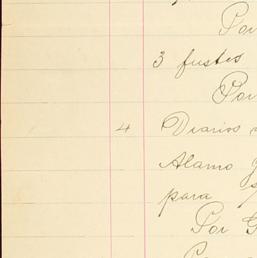 Por
3 fustes
Por
4 Diarios
Alamo
para
Por G